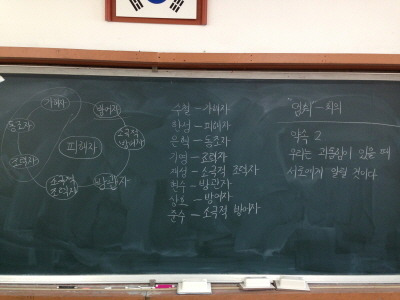 가해자
방어자
동조자
소극적
방어자
피해자
조력자
소극적
조력자
방관자
수철 - 가해자
한성 - 피해자
은혁 - 동조자
가영 - 조력자
재성 - 소극적 조력자
현수 - 방관자
상호 - 방어자
준수 - 소극적 방어자
"멈춰" - 회의
약속 2
우리는 괴롭힘이 있을 때
서로에게 알릴 것이다.